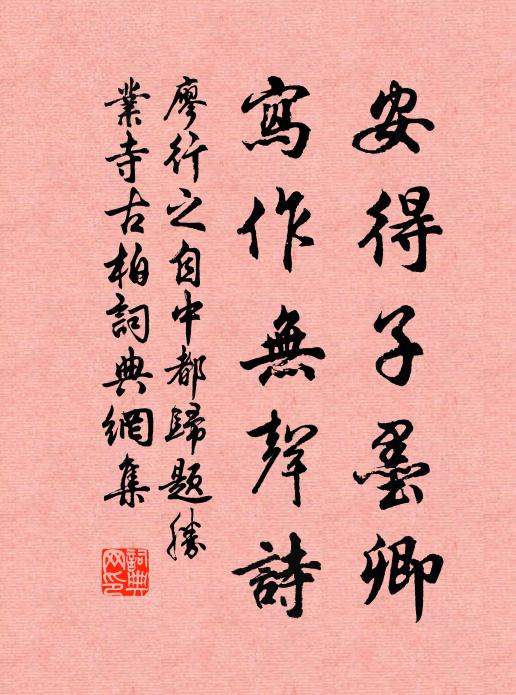 安得子墨卿
寫作無聲詩
廖行之自中都歸題勝
業寺古柏詞典網集
詞典網印